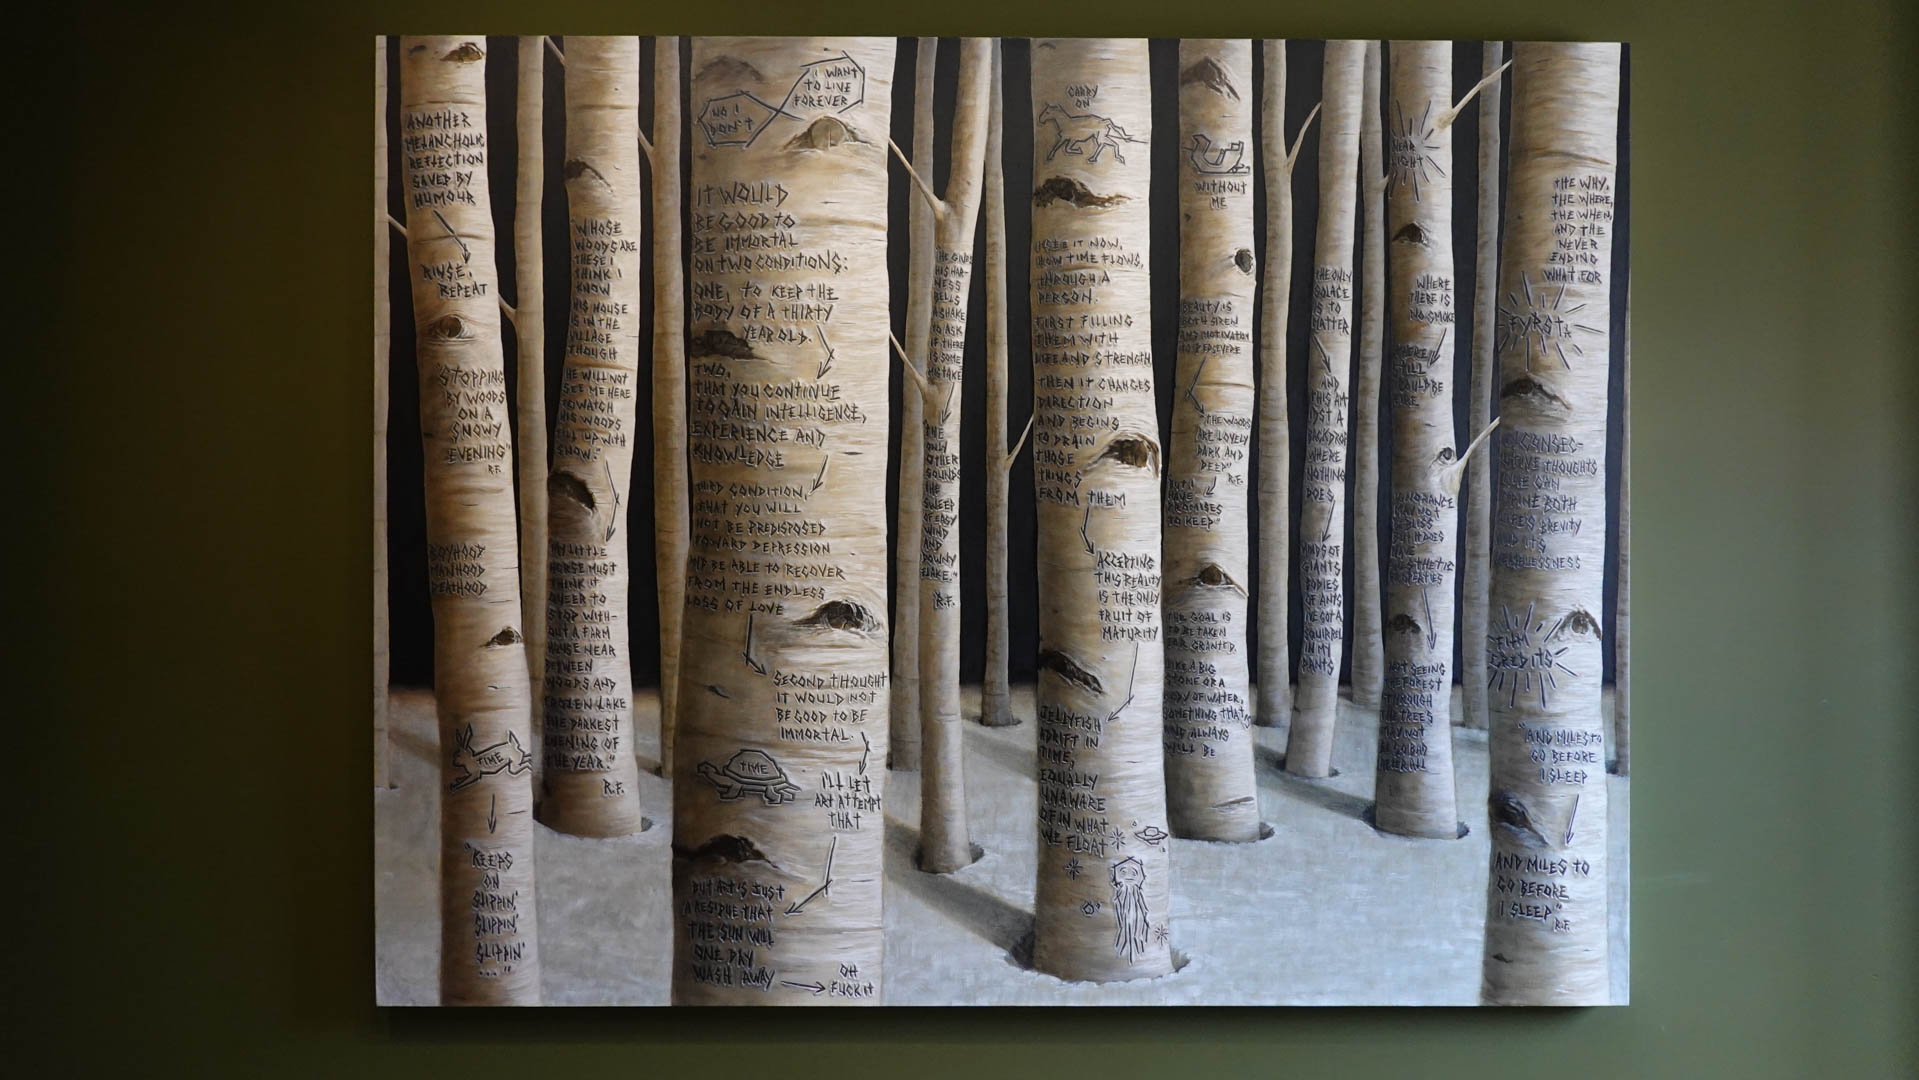 ANOTHER
MELANCHOLIC
REFLECTION
SAVED BY
HUMOUR
RINSE,
REPEAT
"STOPPING
BY WOODS
ON A
SNOWY
EVENING"
R.F.
BOYHOOD
MANHOOD
DEATHHOOD
TIME
"KEEPS
ON
SLIPPIN,'
SLIPPIN,'
SLIPPIN'
..."
"WHOSE
WOODS ARE
THESE I
THINK I
KNOW
HIS HOUSE
IS IN THE
VILLAGE
THOUGH
HE WILL NOT
SEE ME HERE
TO WATCH
HIS WOODS
FILL UP WITH
SNOW."
"MY LITTLE
HORSE MUST
THINK IT
QUEER TO
STOP WITH-
OUT A FARM
HOUSE NEAR
BETWEEN
WOODS AND
FROZEN LAKE
THE DARKEST
EVENING OF
THE YEAR."
R.F.
I WANT
TO LIVE
FOREVER
NO I
DON'T
IT WOULD
BE GOOD TO
BE IMMORTAL
ON TWO CONDITIONS:
ONE, TO KEEP THE
BODY OF A THIRTY
YEAR OLD.
TWO,
THAT YOU CONTINUE
TO GAIN INTELLIGENCE,
EXPERIENCE AND
KNOWLEDGE
THIRD CONDITION,
THAT YOU WILL
NOT BE PREDISPOSED
TOWARD DEPRESSION
AND BE ABLE TO RECOVER
FROM THE ENDLESS
LOSS OF LOVE
SECOND THOUGHT
IT WOULD NOT
BE GOOD TO BE
IMMORTAL.
TIME
I'LL LET
ART ATTEMPT
THAT
BUT ART IS JUST
A RESIDUE THAT
THE SUN WILL
ONE DAY
WASH AWAY
OH
FUCK IT
"HE GIVES
HIS HAR-
NESS
BELLS
A SHAKE
TO ASK
IF THERE
IS SOME
MISTAKE"
"THE
ONLY
OTHER
SOUND'S
THE
SWEEP
OF EASY
WIND
AND
DOWNY
FLAKE."
R.F.
CARRY
ON
I SEE IT NOW,
HOW TIME FLOWS,
THROUGH A
PERSON.
FIRST FILLING
THEM WITH
LIFE AND STRENGTH
THEN IT CHANGES
DIRECTION
AND BEGINS
TO DRAIN
THOSE
THINGS
FROM THEM
ACCEPTING
THIS REALITY
IS THE ONLY
FRUIT OF
MATURITY
JELLYFISH
ADRIFT IN
TIME,
EQUALLY
UNAWARE
OF IN WHAT
WE FLOAT
WITHOUT
ME
BEAUTY IS
BOTH SIREN
AND MOTIVATION
"THE WOODS
ARE LOVELY
DARK AND
DEEP"
R.F.
"BUT I
HAVE
PROMISES
TO KEEP"
THE GOAL IS
TO BE TAKEN
FOR GRANTED.
LIKE A BIG
STONE OR A
BODY OF WATER,
SOMETHING THAT IS
AND ALWAYS
WILL BE
THE ONLY
SOLACE
IS TO
MATTER
AND
THIS AM
JUST A
BACKDROP
WHERE
NOTHING
DOES
MINDS OF
GIANTS
BODIES
OF ANTS
I'VE GOT A
SQUIRREL
IN MY
PANTS
NEAR
LIGHT
WHERE
THERE IS
NO SMOKE
THERE
STILL
COULD BE
FIRE
IGNORANCE
MAY NOT
BE BLISS
BUT IT DOES
HAVE
ANESTHETIC
PROPERTIES
NOT SEEING
THE FOREST
THROUGH
THE TREES
MAY NOT
BE SO BAD
AFTER ALL
THE WHY,
THE WHERE,
THE WHEN,
AND THE
NEVER
ENDING
WHAT FOR
FYRSTA
IN CONSEC-
UTIVE THOUGHTS
ONE CAN
OPINE BOTH
LIFE'S BREVITY
AND ITS
ENDLESSNESS
FILM
CREDITS
"AND MILES TO
GO BEFORE
I SLEEP
AND MILES TO
GO BEFORE
I SLEEP"
R.F.